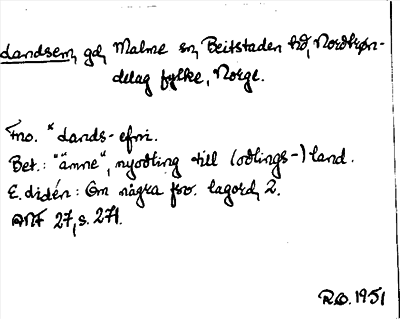 Landsem, gd, Malme sn, Beitstaden hd, Nordtrøn-
delag fylke, Norge.
Fno. *Lands-efni.
Bet.: "ämne", nyodling till (odlings-)land.
E. Lidén: Om några fno. lagord, 2.
ANF 27, s. 271.
1951